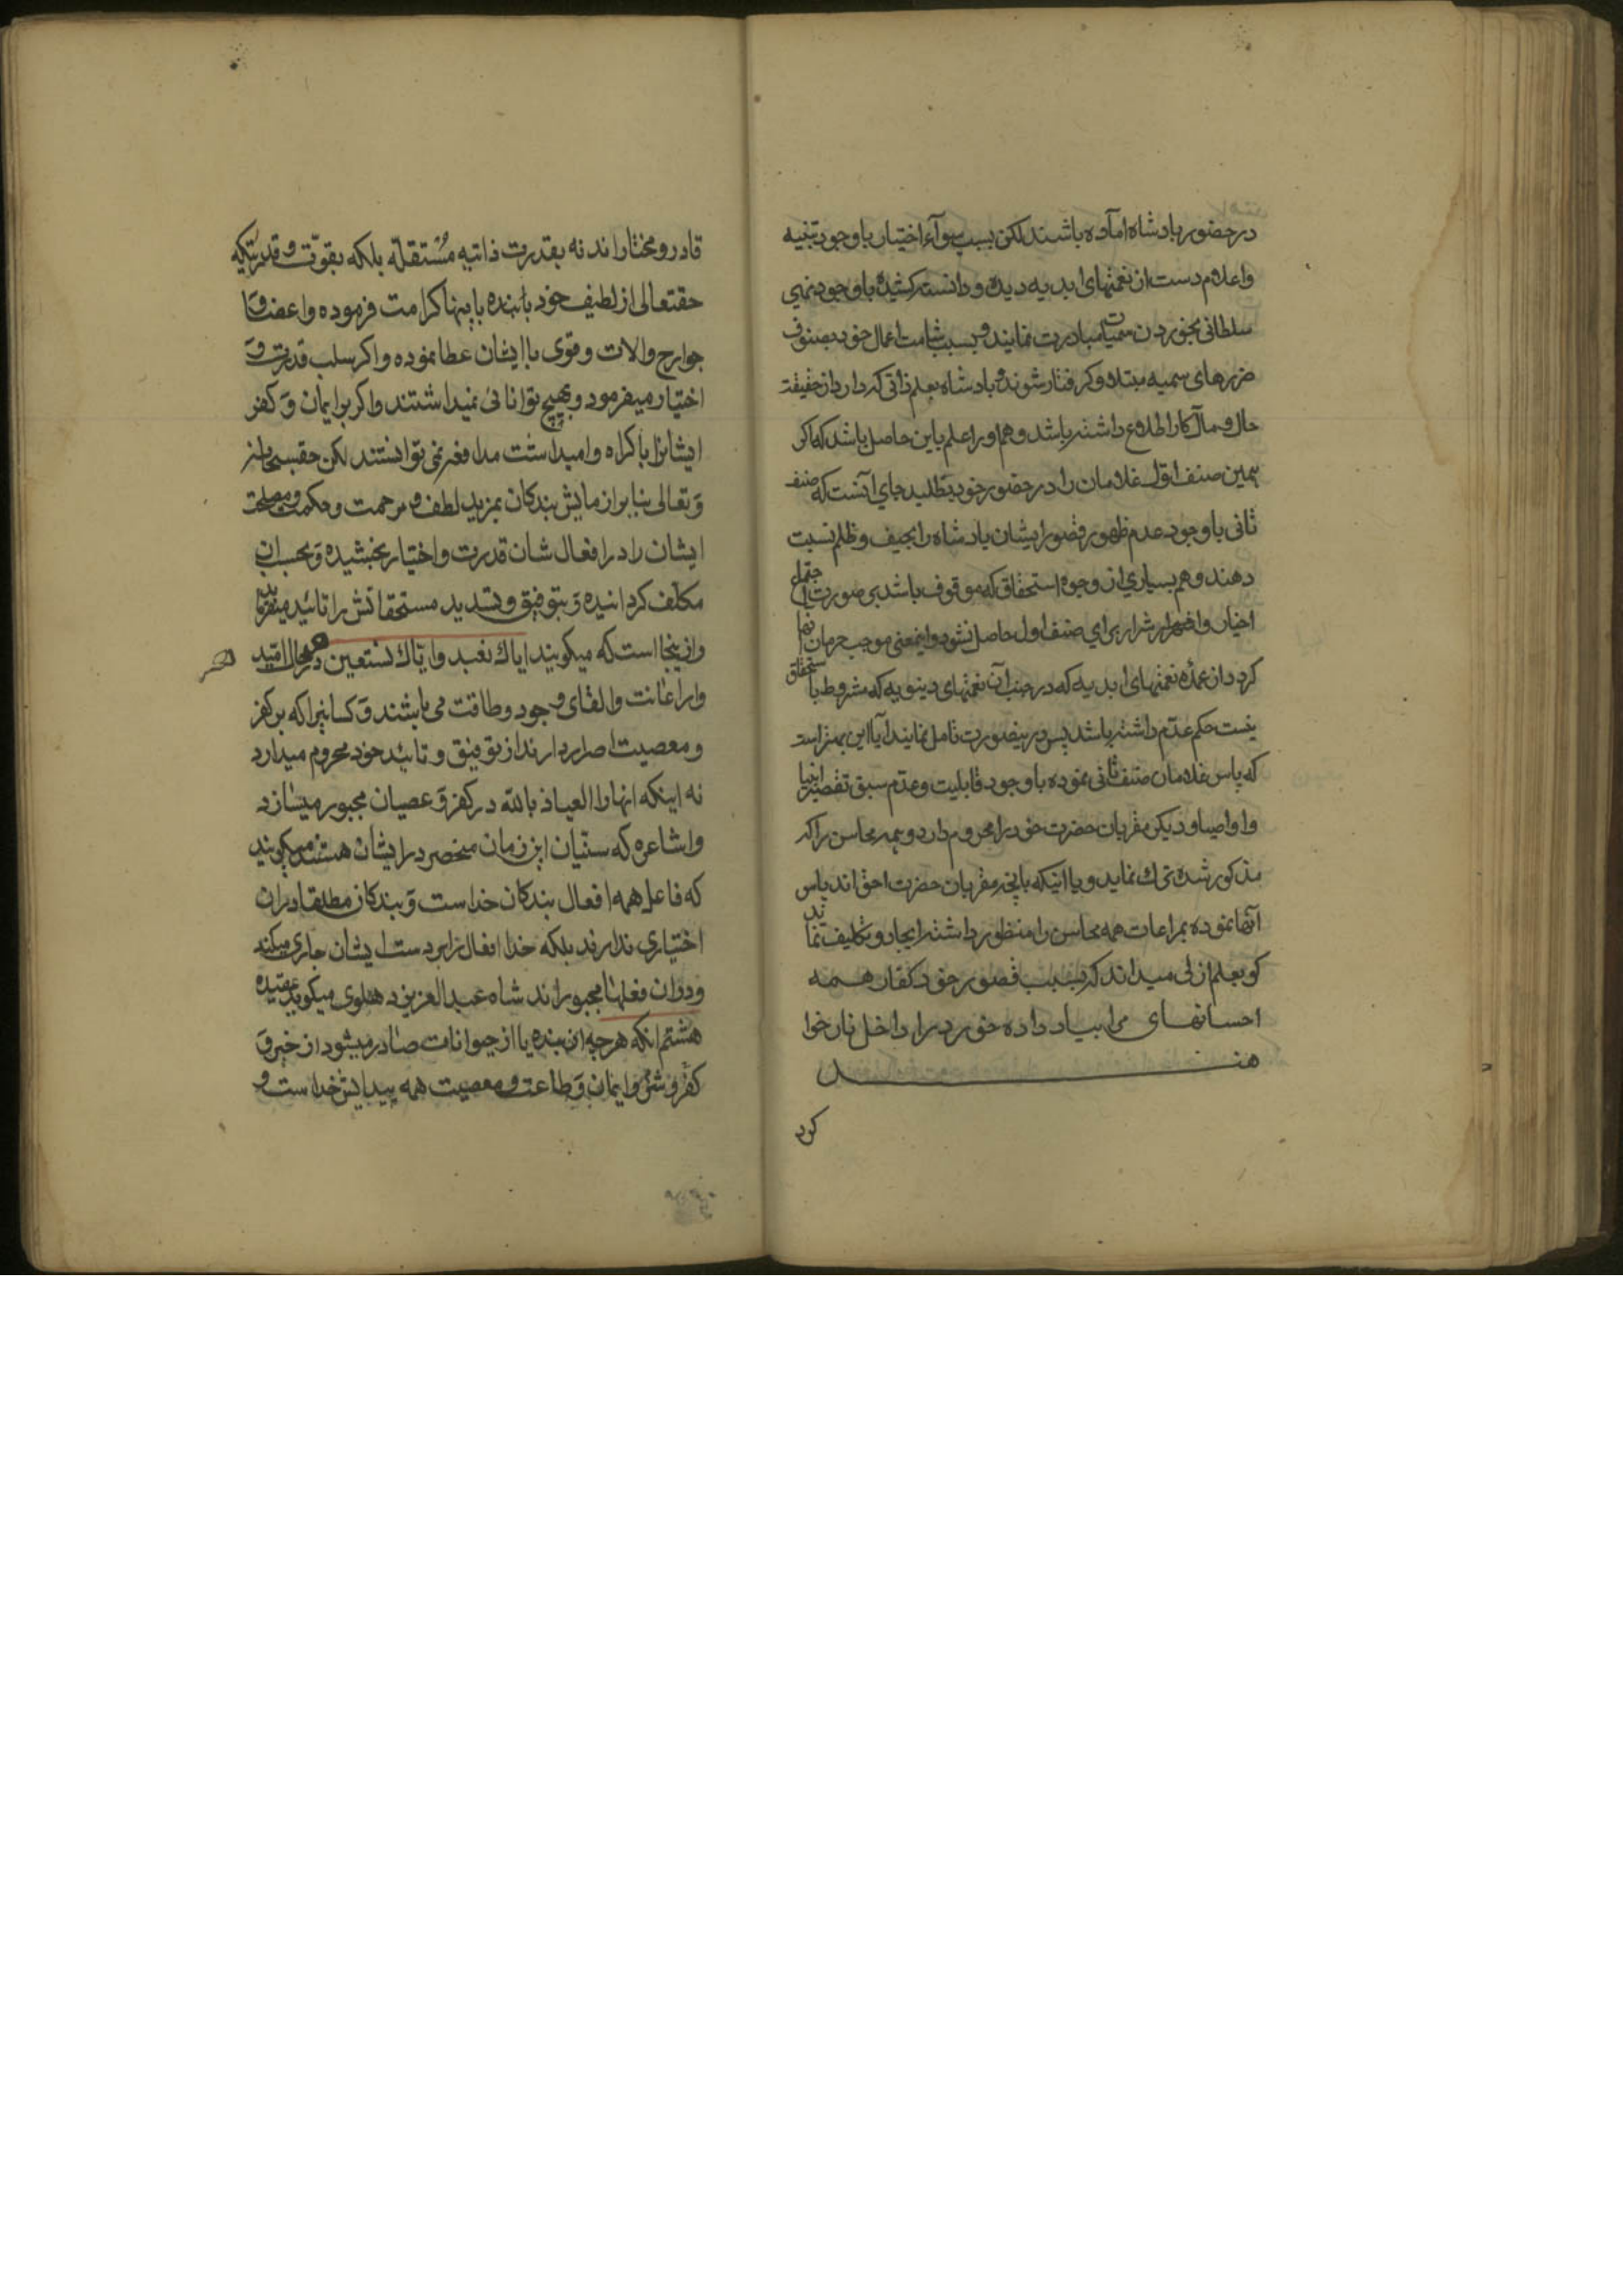 در حضور پادشاه آماده باشند لکن بسبب سوآء اختیار باوجود تنبیه
واعلام دست از نعمتهای ابدیه دیده و دانسته کشیده باوجود نهی
سلطانی بخوردن سمیات مبادرت نمایند و بسبب شامت اعمال خود بصنوف
ضررهای سمیه مبتلا و کرفتار شوند و پادشاه بعلم ذاتی که دارد از حقیقت
حال و مآل کار اطلاع داشته باشد و هم او را علم باین حاصل باشد که اکر
همین صنف اول غلامان را در حضور خود بطلبد جای آنست که صنف
ثانی باوجود عدم ظهور قصور ایشان پادشاه را بحیف و ظلم نسبت
دهند و هم بسیاری از وجوه استحقاق که موقوف باشد بی صورت اجتماع
اخیار و اشرار برای صنف اول حاصل نشود و اینمعنی موجب حرمان آنها
کردد از عمده نعمتهای ابدیه که در جنب آن نعمتهای دینویه که مشروط با ستحقاق
نیست حکم عدم داشته باشد پس درینصورت تامل نمایند آیا این بهتر است
که پاس غلامان صنف ثانی نموده باوجود قابلیت و عدم سبق تقصیر انبیا
و اوصیا و دیکر مقربان حضرت خود را محروم دارد و همه محاسن را که
مذکور شده ترک نماید و یا اینکه بانچه مقربان حضرت احق اند پاس
آنها نموده بمراعات همه محاسن را منظور داشته ایجاد و تکلیف نماید
کو بعلم ازلی میداند که بسبب قصور خود کفار همه
احسانهای مرا بباد داده خود را داخل نار خوا
هند
کرد
قادر و مختار اند نه بقدرت ذاتیه مستقله بلکه بقوت و قدرتیکه
حقتعالی از لطیف خود باینها کرامت فرموده و اعضا و
جوارح و الات و قوی باایشان عطا نموده و اکر سلب قدرت و
اختیار میفرمود و بهیچ توانائی نمیداشتند و اکر بر ایمان و کفر
ایشانرا باکراه وامیداشت مدافعه نمی توانستند لکن حقسبحانه
و تعالی بنابر ازمایش بندکان بمزید لطف و مرحمت و حکمت و مصلحت
ایشان را در افعال شان قدرت و اختیار بخشیده و بحسب آن
مکلف کردانیده و بتوفیق و تسدید مستحقانش را تائید میفرماید
و ازینجا است که میکویند ایاک نعبد و ایاک نستعین در هر حال امید
وار اعانت و القای وجود و طاقت می باشند و کسانیرا که بر کفر
و معصیت اصرار دارند از توفیق و تائید خود محروم میدارد
نه اینکه انها را العیاذ بالله در کفر و عصیان مجبور میسازد
و اشاعره که سنیان این زمان منحصر در ایشان هستند میکویند
که فاعل همه افعال بندکان خداست و بندکان مطلقا دران
اختیاری ندارند بلکه خدا افعال را بر دست ایشان جاری میکند
و دران فعلها مجبور اند شاه عبدالعزیز دهلوی میکوید عقیده
هشتم انکه هر چه از بنده یا از حیوانات صادر میشود از خیر و
کفر و شر و ایمان و طاعت و معصیت همه پیدایش خداست و